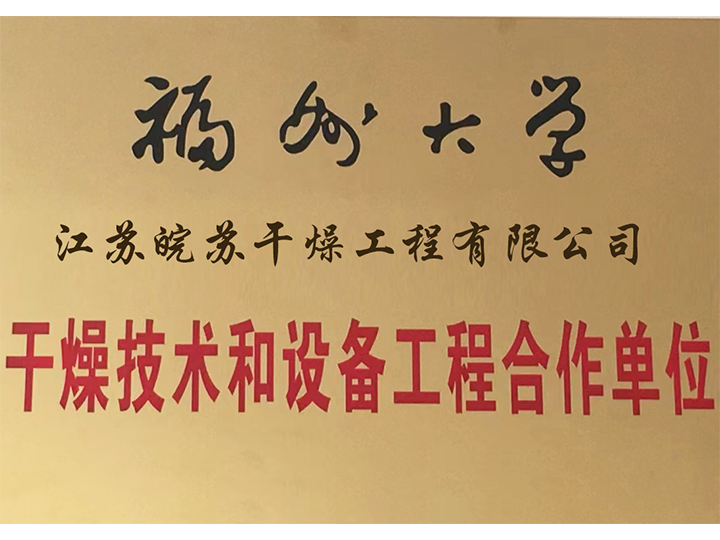 福州大学
江苏皖苏干燥工程有限公司
干燥技术和设备工程合作单位